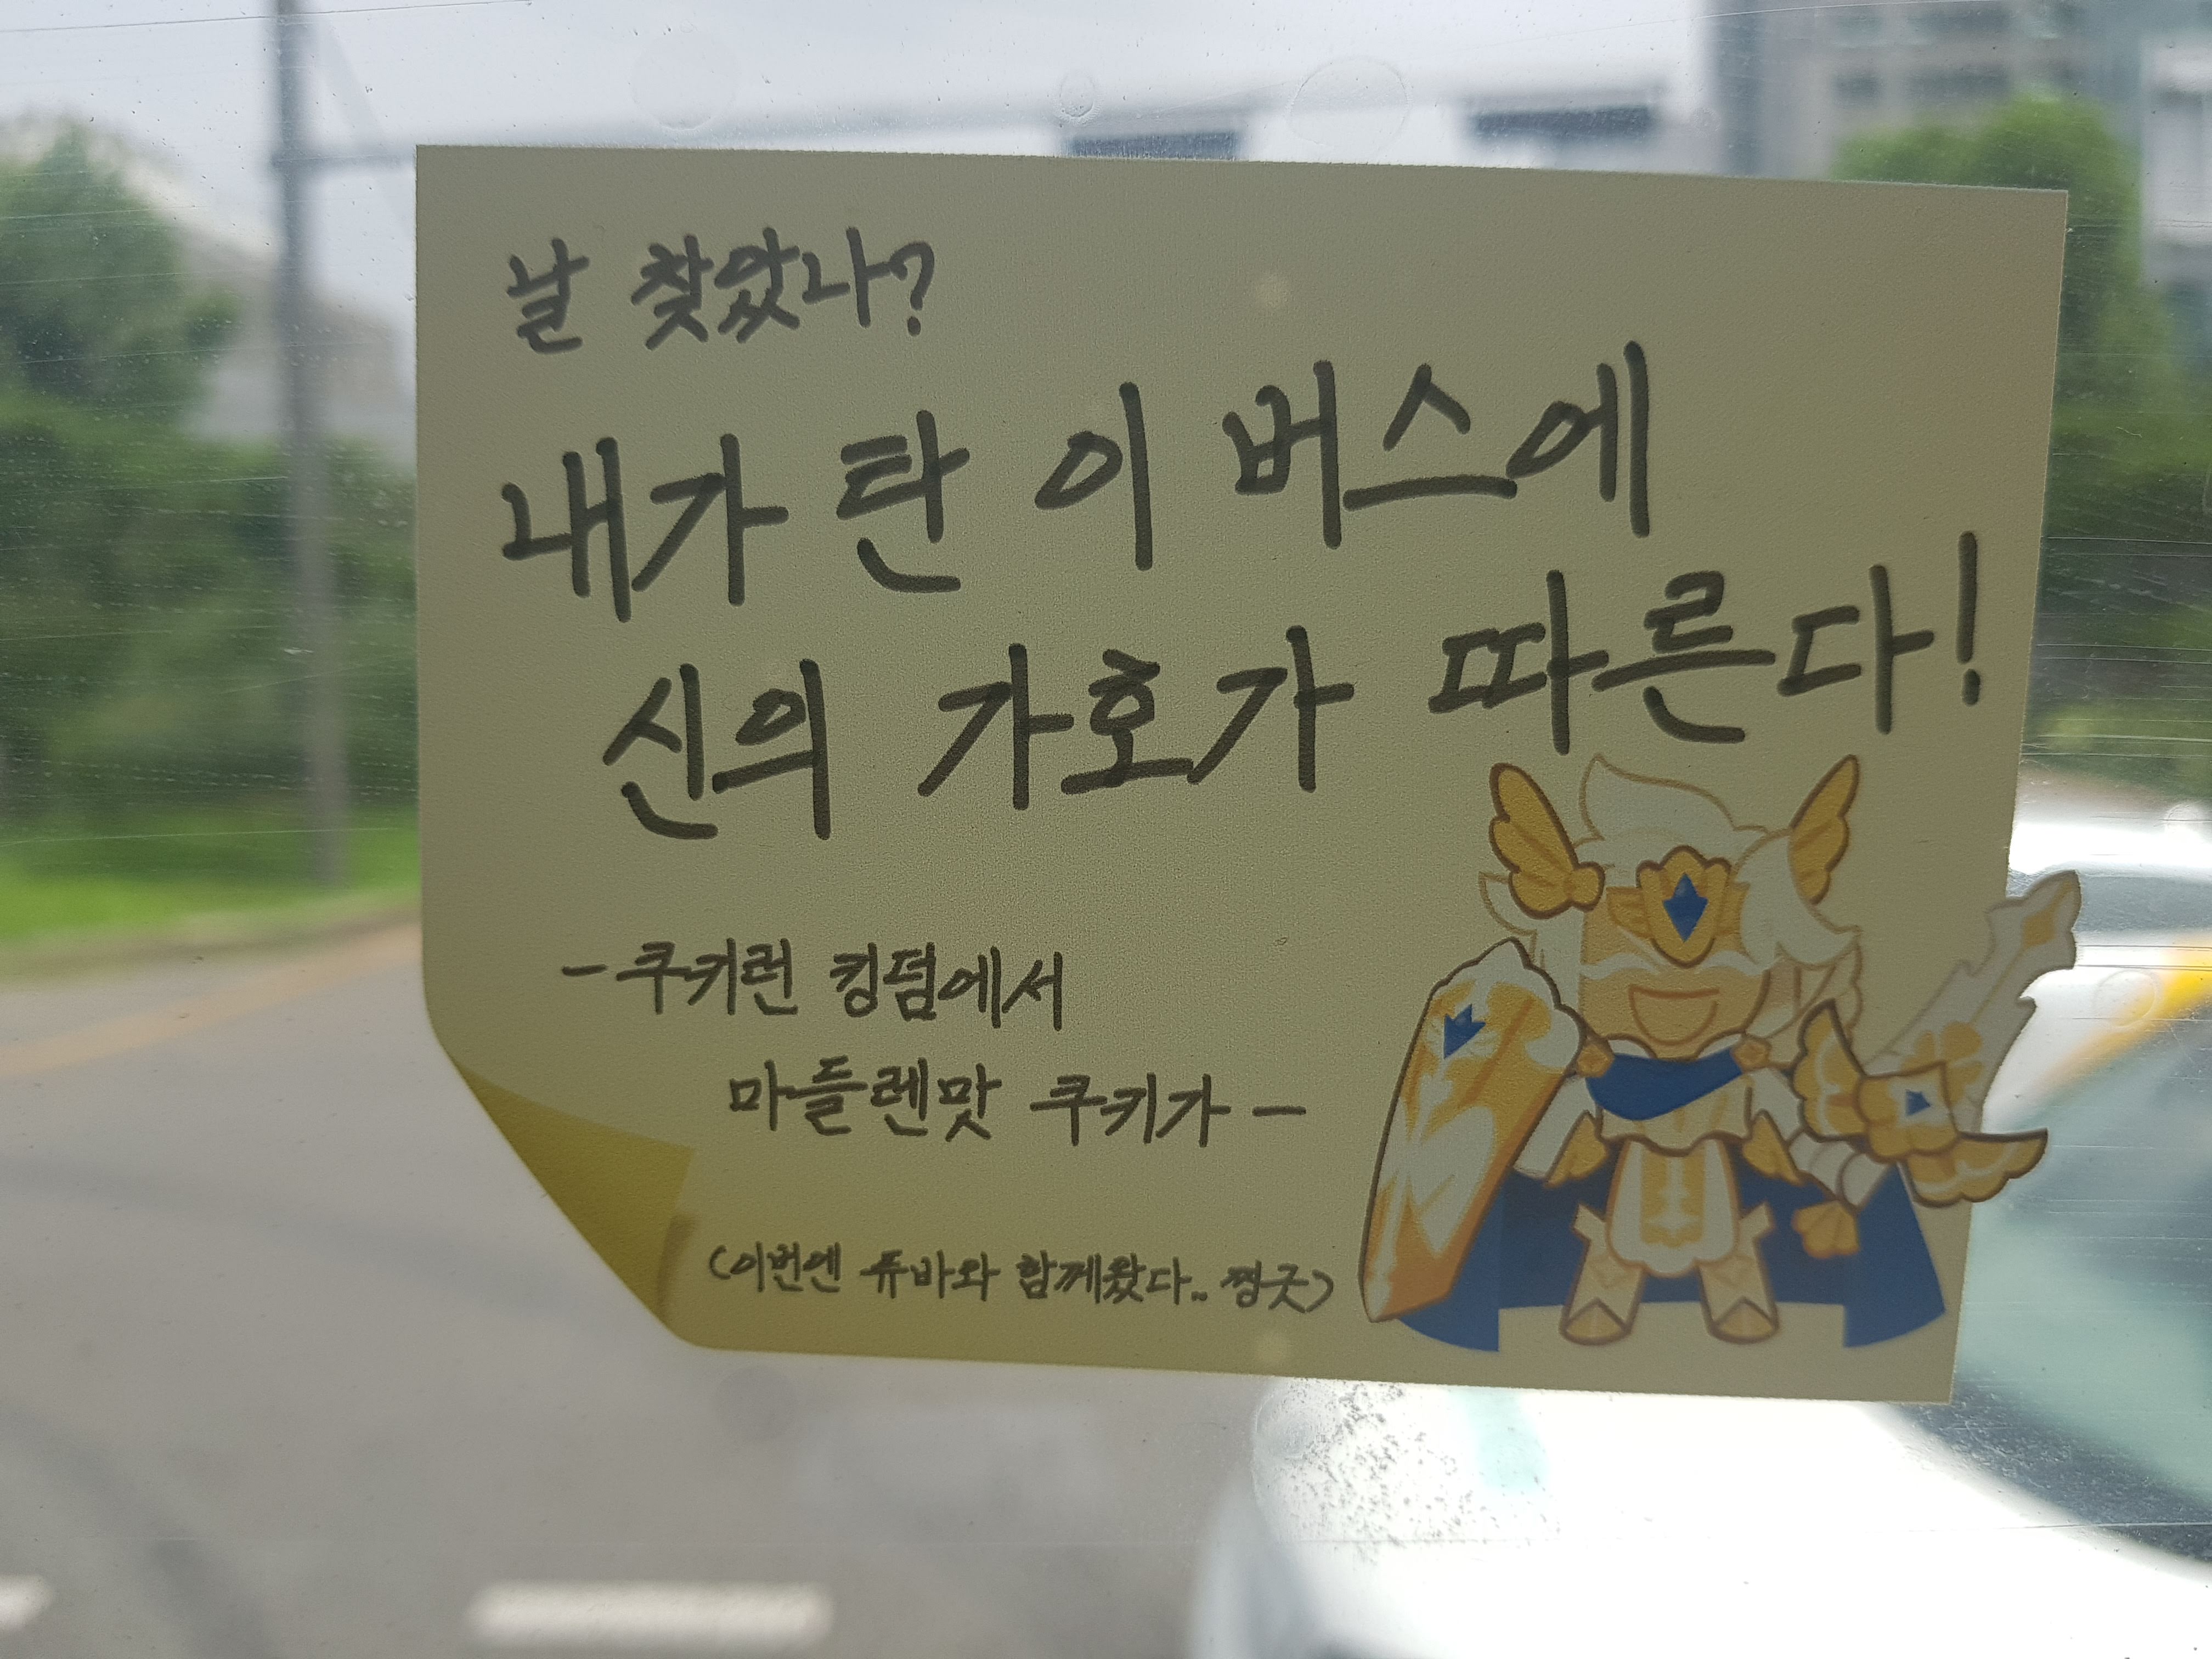 날 찾았나?
내가 탄 이 버스에
신의 가호가 따른다!
-쿠키런 킹덤에서
마들렌맛 쿠키가-
(이번엔 퓨바와 함께왔다.. 찡긋)